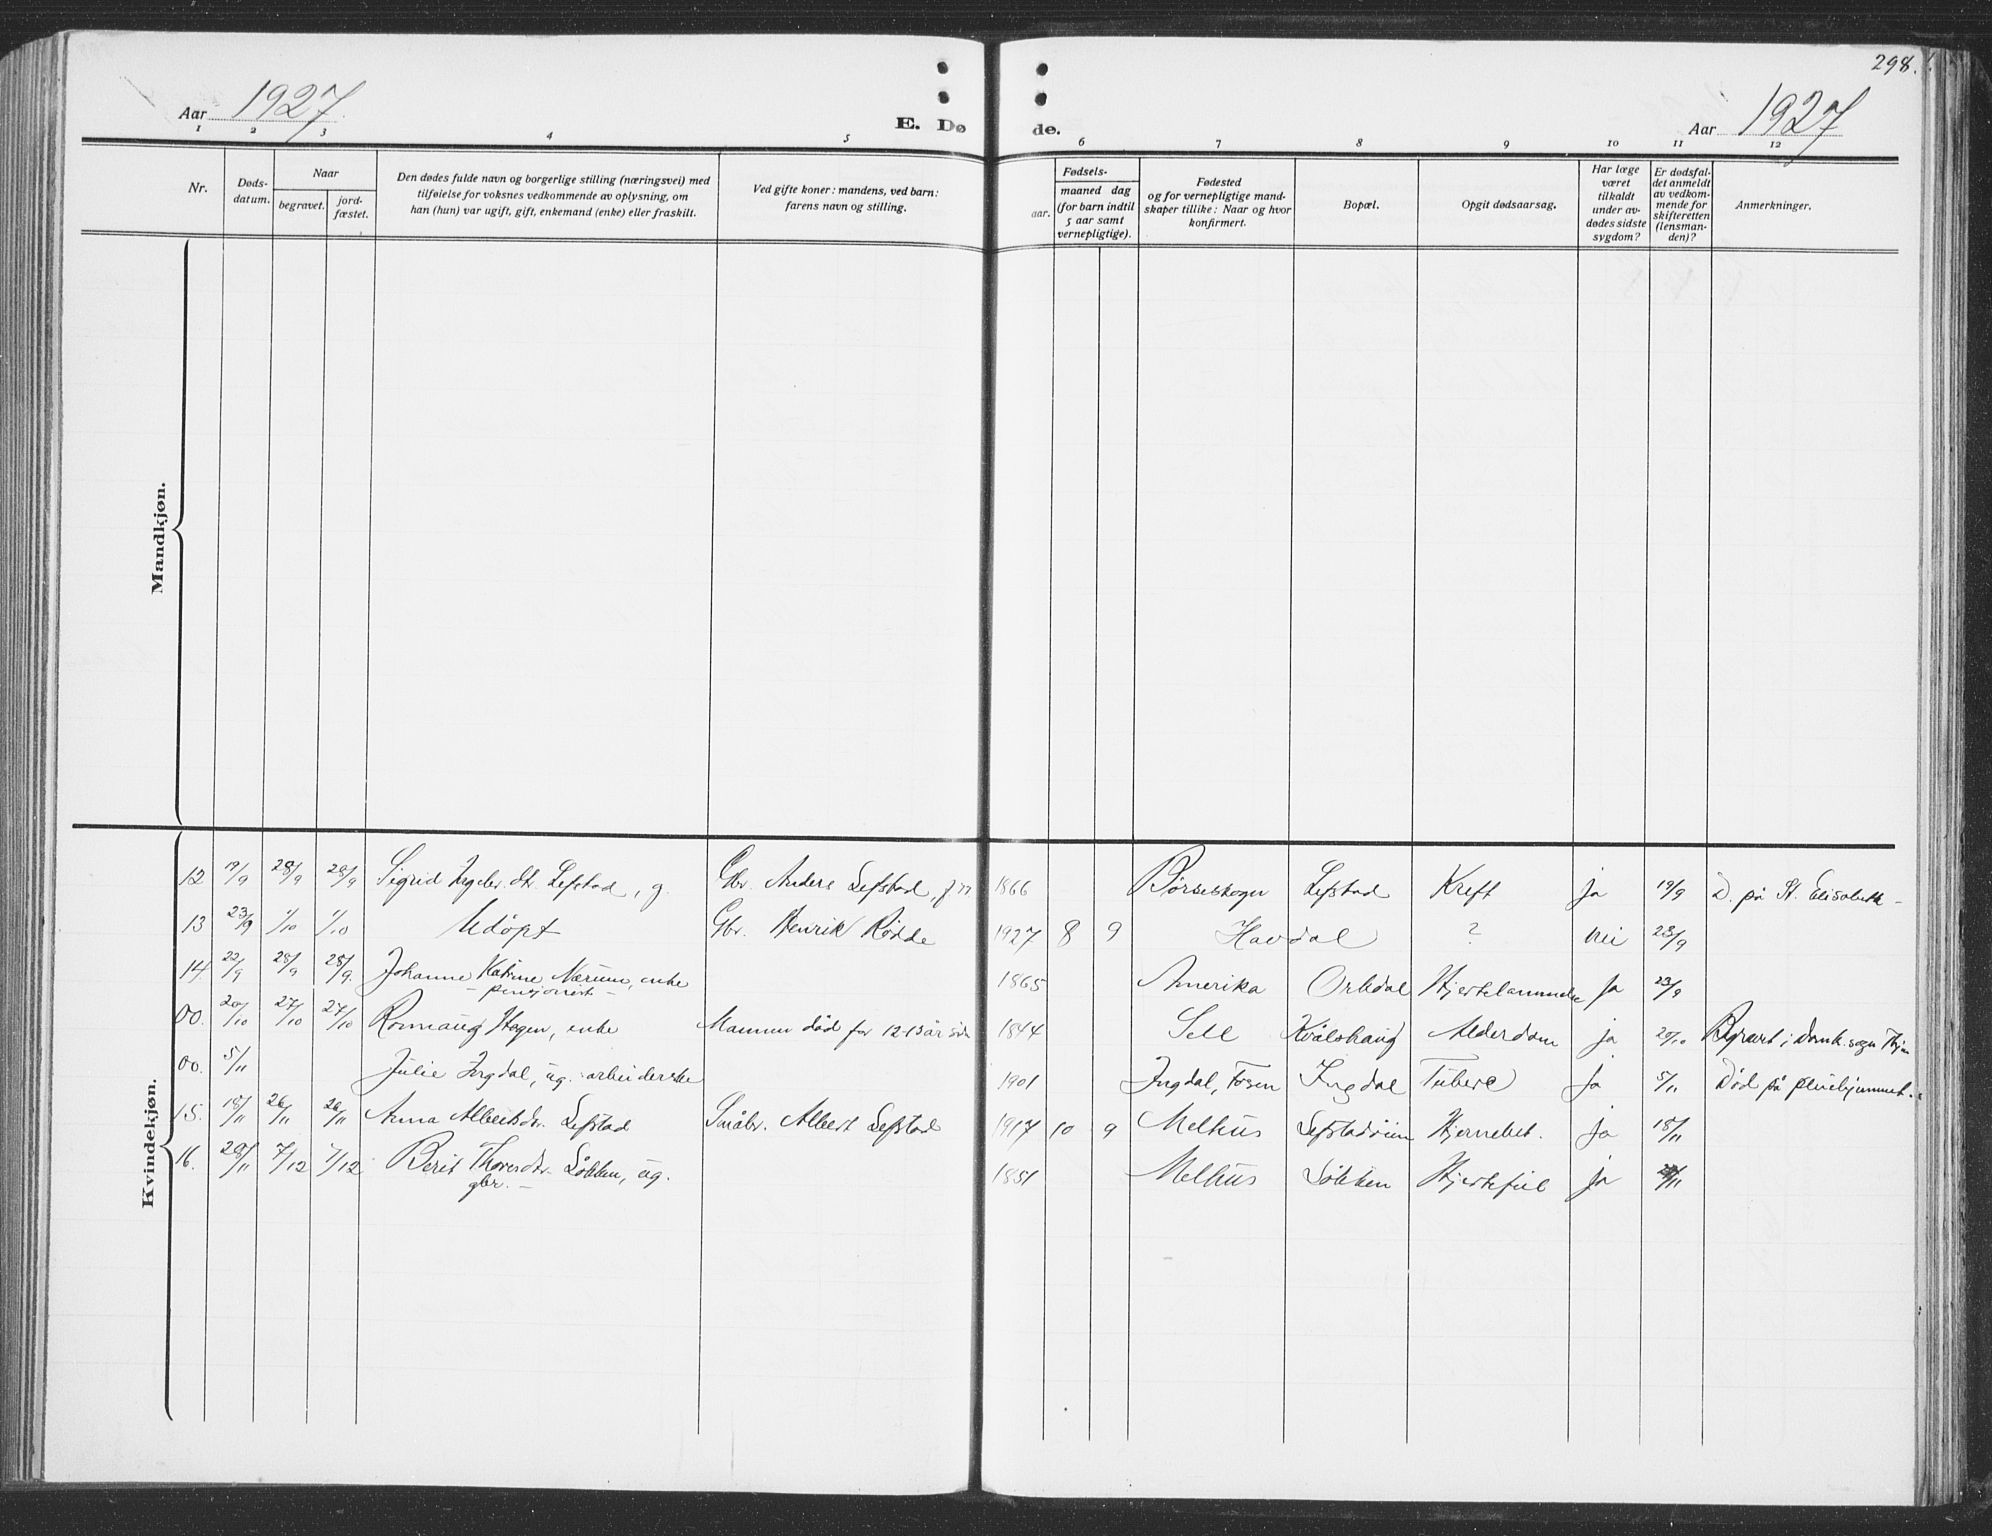 298.
Aar 1927
E. Dø de.
Aar 1927
1 2 3 4 5 6 7 8 9 10 11 12
Nr.
Døds-
datum.
Naar
begravet.
jord-
fæstet.
Den dødes fulde navn og borgerlige stilling (næringsvei) med
tilføielse for voksnes vedkommende av oplysning, om
han (hun) var ugift, gift, enkemand (enke) eller fraskilt.
Ved gifte koner: mandens, ved barn:
farens navn og stilling.
Fødsels-
aar.
maaned dag
(for barn indtil
5 aar samt
vernepligtige).
Fødested
og for vernepligtige mand-
skaper tillike: Naar og hvor
konfirmert.
Bopæl.
Opgit dødsaarsag.
Har læge
været
tilkaldt
under av-
dødes sidste
sygdom?
Er dødsfal-
det anmeldt
av vedkom-
mende for
skifteretten
(lensman-
den)?
Anmerkninger.
Mandkjøn.
Kvindekjøn.
12 19/9 28/9 28/9 Sigrid Ingebr.dtr. Lefstad, g. Gbr. Anders Lefstad, f. 1866 Børseskogn Lefstad Kreft ja 19/9 D. på St. Elisabeth
13 23/9 1/10 1/10 Udöpt Gbr. Henrik Rödde 1927 8 9 Havdal ? nei 23/9
14. 22/9 28/9 28/9. Johanne Katrine Nærum, enke 1865 Amerika Orkdal Hjertelammelse ja 23/9
- pensjonist -
00. 20/10 27/10 27/10 Hagen, enke Mannen död for 12-13 år sid 1844 Sell Kvålshaug Alderdom ja 20/10 i sogn
00. 5/11 Julie Ingdal, ug. arbeiderske 1901 Ingdal, Fosen Ingdal Tuberc ja 5/11 Död på pleiehjemmet.
15. 18/11 26/11 26/11 Anna Albertsdtr. Lefstad Småbr. Albert Lefstad 1917 10 9 Melhus Hjernebet. ja 18/11
16. 28/11 7/12 7/12 Berit Lökken, ug. 1851 Melhus Lökken Hjertefeil ja
gbr. -